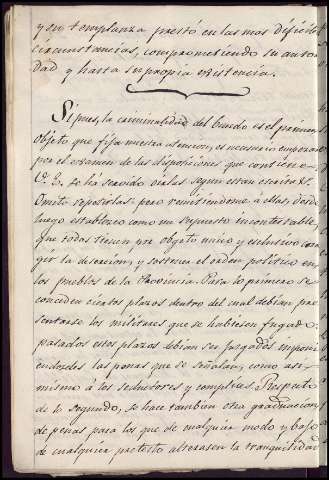 y su templanza prestó en las mas dificiles
circunstancias, comprometiendo su autori-
dad y hasta su propia existencia.
Si pues, la criminalidad del bando es el primer
objeto que fija nuestra atencion, es necesario empezar
por el examen de las disposiciones que contiene.
V. E. se há servido oirlas segun están escritas.
Omito repetirlas: pero remitiendome á ellas, desde
luego establezco como un supuesto incontestable,
que todas tienen por objeto unico y esclusivo corre-
gir la desercion, y sostener el orden politico en
los pueblos de la Provincia. Para lo primero se
conceden ciertos plazos dentro del cual debian pre-
sentarse los militares que se habiesen fugado:
pasados estos plazos debian ser juzgados imponi-
endoseles las penas que se señalan, como asi-
mismo á los seductores y complices. Respecto
de lo segundo, se hace tambien otra graduacion
de penas para los que de cualquier modo y bajo
de cualquier pretesto alterasen la tranquilidad